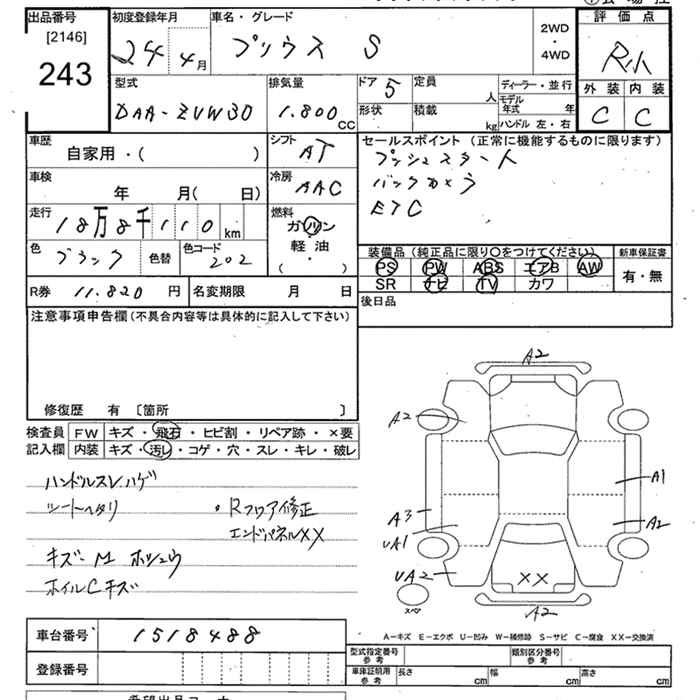 出品番号
[2146]
243
初度登録年月
24 4月
車名・グレード
プリウス S
2WD
・
4WD
評価点
R小
外装 内装
C C
型式
DAA-ZVW30
排気量
1.800 CC
ドア 5
形状
定員
人
積載
kg
ディーラー・並行
モデル年式 年
ハンドル 左・右
車歴
自家用・( )
シフト
AT
車検
年 月( 日)
冷房
AAC
走行
18万8千110km
燃料
ガソリン
軽油
( ・ )
色
ブラック
色替
色コード
202
R券 11.820 円
名変期限 月 日
セールスポイント (正常に機能するものに限ります)
プッシュスタート
バックカメラ
ETC
装備品 (純正品に限り○をつけてください)
PS PW ABS エアB AW
SR ナビ TV カワ
新車保証書
有・無
後日品
注意事項申告欄 (不具合内容等は具体的に記入して下さい)
修復歴 有 〔箇所 〕
検査員
記入欄
FW キズ・飛石・ヒビ割・リペア跡・×要
内装 キズ・汚レ・コゲ・穴・スレ・キレ・破レ
ハンドルスレハゲ
シートヘタリ
・Rフロア修正
エンドパネルXX
キズーM ホシュウ
ホイルCキズ
A2
A2
A1
A3
A2
UA1
UA2
XX
スペア
A2
A-キズ E-エクボ U-凹み W-補修跡 S-サビ C-腐食 XX-交換済
車台番号 1518488
登録番号
型式指定番号
参考
類別区分番号
参考
車庫証明用
参考
長さ cm
幅 cm
高さ cm